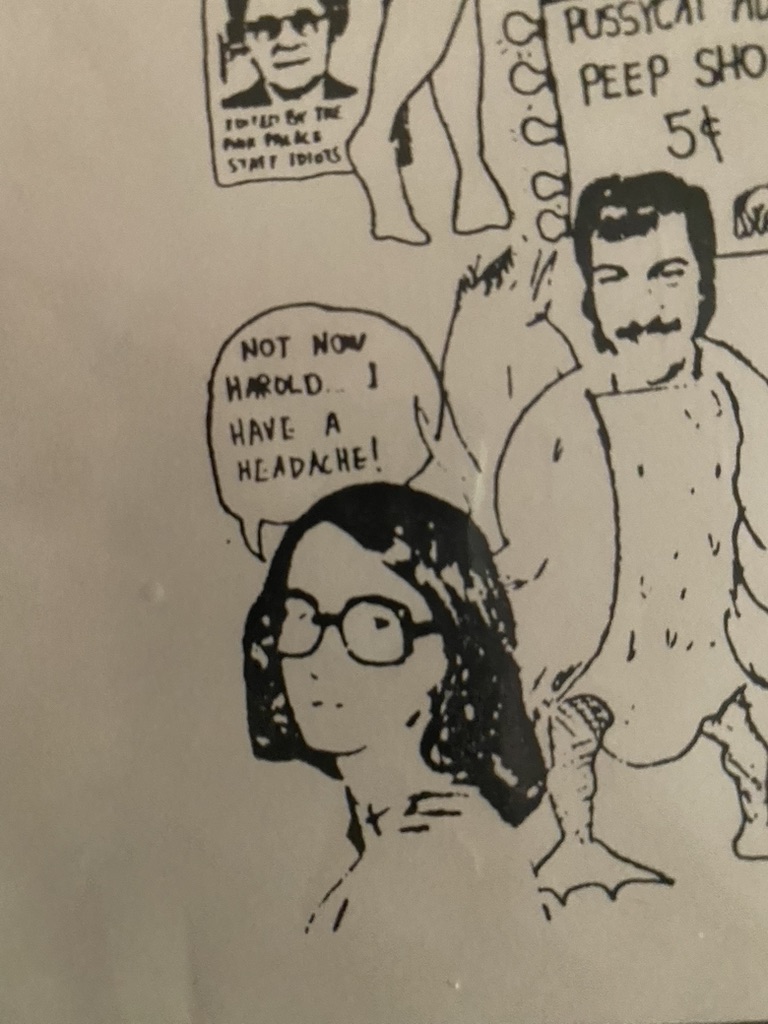 EDITED BY THE
PORK PALACE
STAFF IDIOTS
PUSSYCAT
PEEP SHO
5¢
NOT NOW
HAROLD... I
HAVE A
HEADACHE!